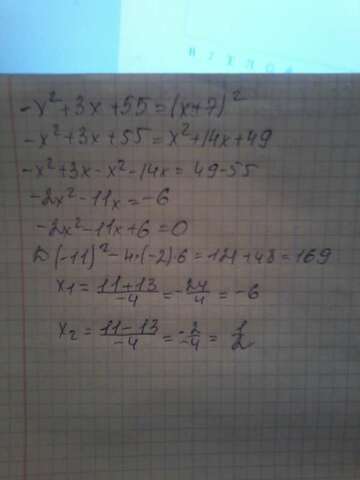 -x²+3x+55=(x+7)²
-x²+3x+55=x²+14x+49
-x²+3x-x²-14x=49-55
-2x²-11x=-6
-2x²-11x+6=0
D(-11)²-4·(-2)·6=121+48=169
x₁=11+13/-4=-24/4=-6
x₂=11-13/-4=-2/-4=1/2